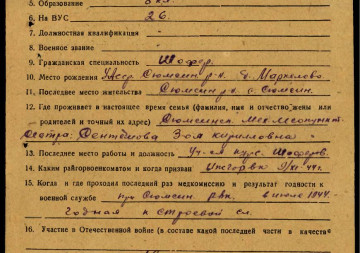 5. Образование " 8 кл. "
6. На ВУС " 26.
7. Должностная квалификация "
8. Военное звание "
9. Гражданская специальность Шофер.
10. Место рождения УАсср. Сюмсин р-н. д. Маркелово.
11. Последнее место жительства Сюмсин р-н с. Сюмсин.
12. Где проживает в настоящее время семья (фамилия, имя и отчество жены или
родителей и точный их адрес) Сюмсинск
Сестра: Зоя Кирилловна
13. Последнее место работы и должность курс. Шоферов.
14. Каким райгорвоенкоматом и когда призван 9/XI-44г.
15. Когда и где проходил последний раз медкомиссию и результат годности к
военной службе при Сюмсин. РВК. в июле 1944.
Годная к строевой сл.
16. Участие в Отечественной войне (в составе какой последней части в качестве